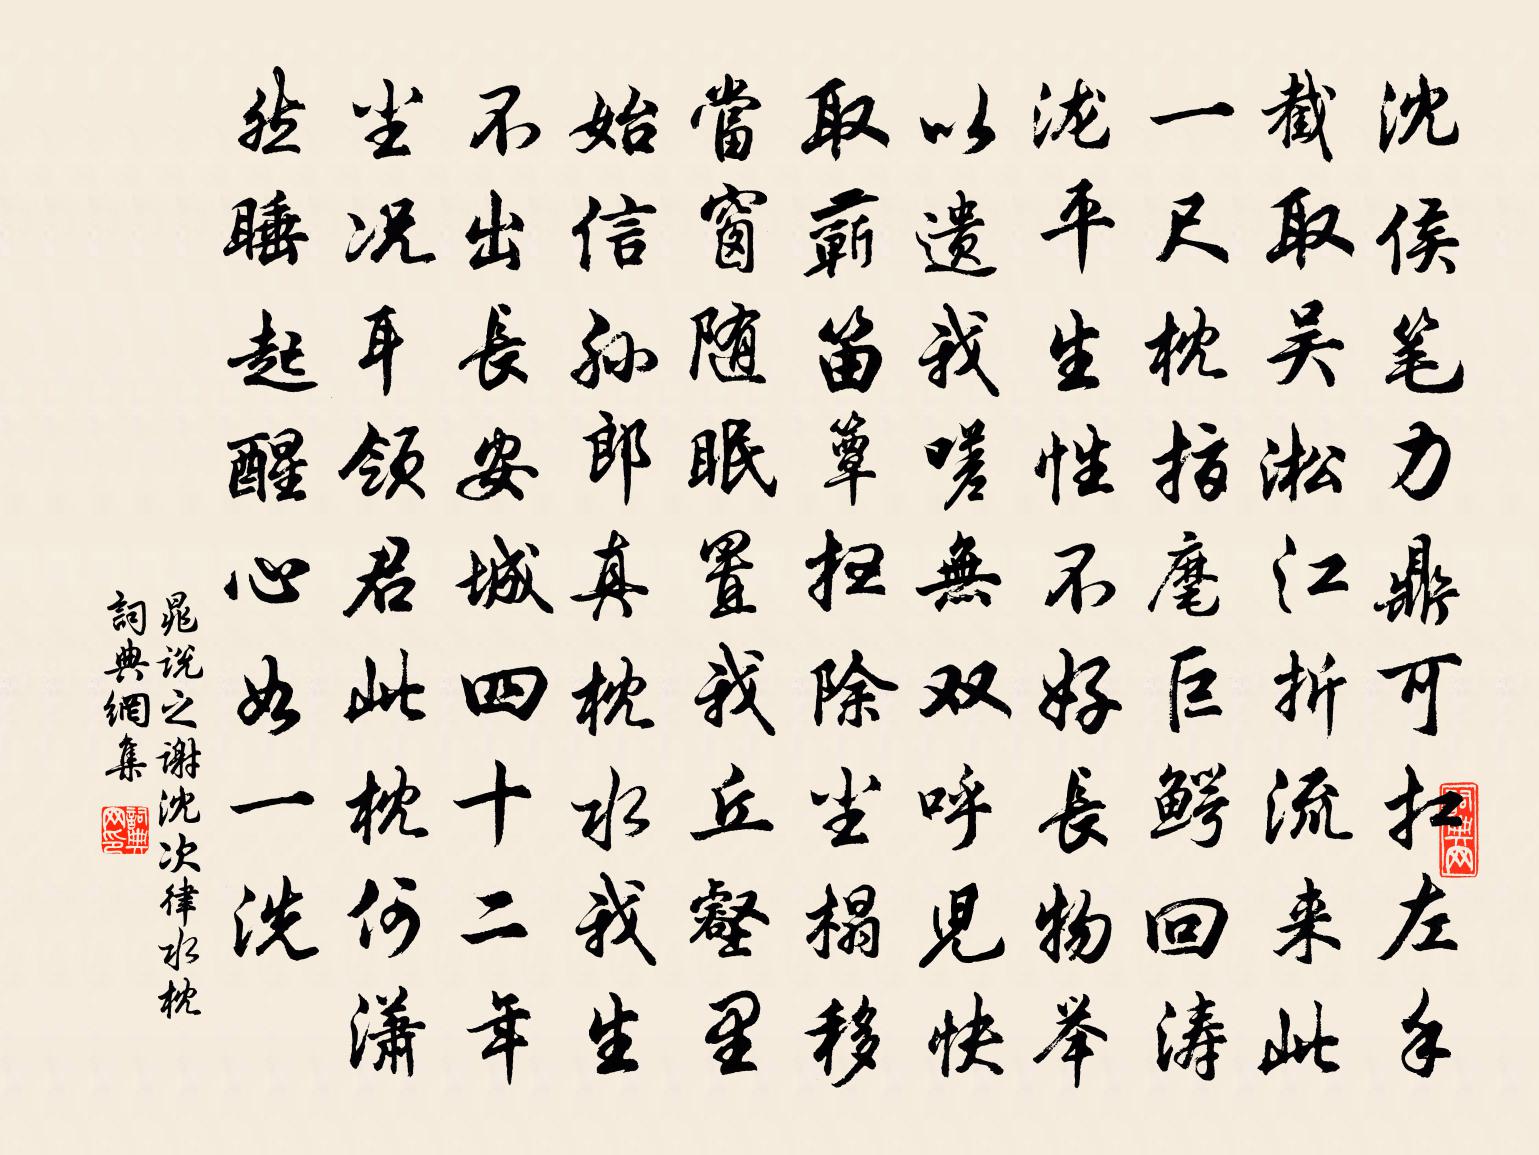 沈侯笔力鼎可扛左手
截取吴淞江折流来此
一尺枕指麾巨鳄回涛
泷平生性不好長物举
以遗我嗟無双呼児快
取蕲笛簟扫除尘榻移
當窗随眠置我丘壑里
始信孙郎真枕水我生
不出長安城四十二年
尘况耳领君此枕何潇
然睡起醒心如一洗
晁说之谢沈次律水枕
詞典網集
詞典网
詞典网印